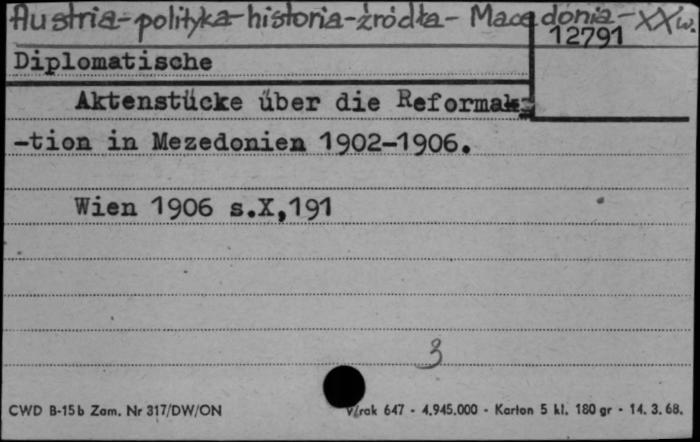 Austria-polityka-historia-źródła- Macedonia-XXw.
12791
Diplomatische
Aktenstücke über die Reforma
-tion in Mezedonien 1902-1906.
Wien 1906 s.X,191
3
CWD B-15b Zam. Nr 317/DW/ON V/rak 647 - 4.945.000 - Karton 5 kl. 180 gr - 14. 3. 68.